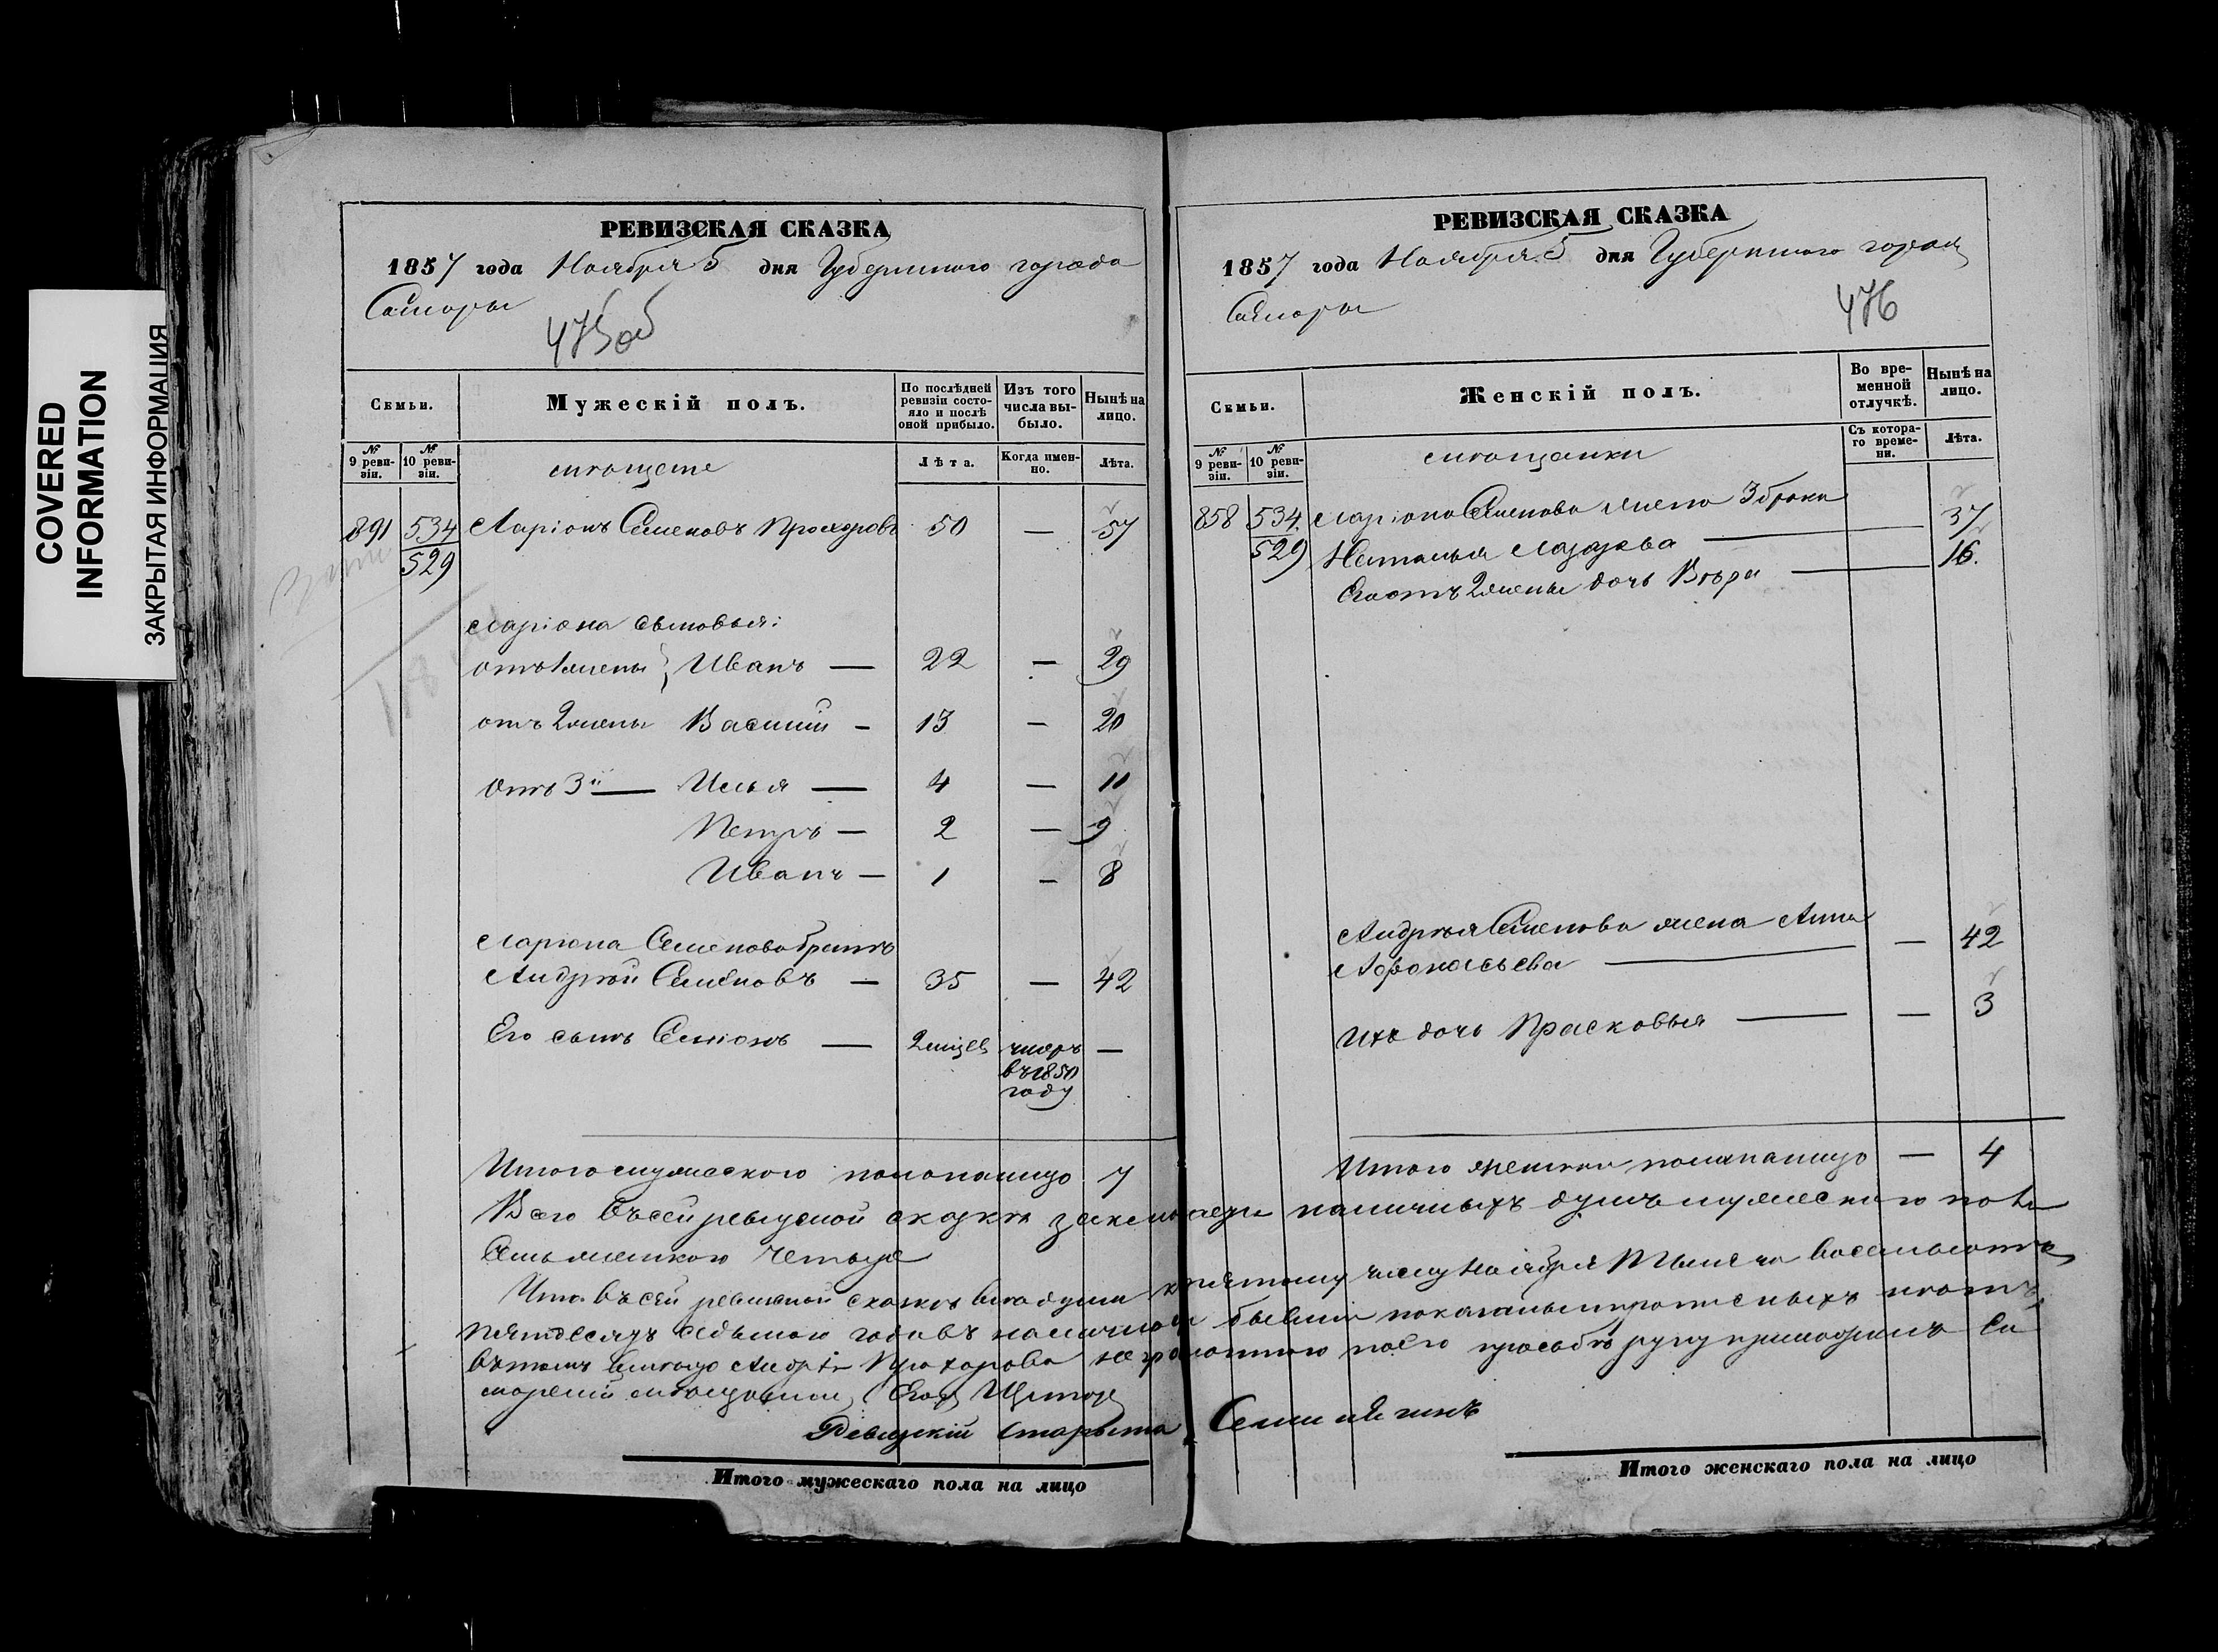 COVERED
INFORMATION
ЗАКРЫТАЯ ИНФОРМАЦИЯ
РЕВИЗСКАЯ СКАЗКА
1857 года Ноября 5 дня Губернского города
Самары
475об
Семьи.
Мужескій полъ.
По послѣдней ревизіи состояло и послѣ оной прибыло.
Изъ того числа выбыло.
Нынѣ на лицо.
№ 9 ревизіи.
№ 10 ревизіи.
мещане
Лѣта.
Когда именно.
Лѣта.
891 534 Ларіонъ Семеновъ Прохоровъ 50 — 57
529
Ларіона сыновья:
отъ 1 жены Иванъ — 22 — 29
отъ 2 жены Василій — 13 — 20
Отъ 3й — Илья — 4 — 11
Петръ — 2 — 9
Иванъ — 1 — 8
Ларіона Семенова братъ
Андрей Семеновъ — 35 — 42
Его сынъ Семіонъ — 2 умеръ —
въ 1850
году
Итого мужеского пола на лицо 7
РЕВИЗСКАЯ СКАЗКА
1857 года Ноября 5 дня Губернского города
Самары
476
Семьи.
Женскій полъ.
Во временной отлучкѣ.
Нынѣ на лицо.
№ 9 ревизіи.
№ 10 ревизіи.
мещанки
Съ котораго времени.
Лѣта.
858 534 Ларіона Семенова жена 3 брака
529 Наталья Лазарева — 37
Его отъ 2 жены дочь Вѣра — 16.
Андрея Семенова жена Анна
Афонасьева — — 42
Ихъ дочь Прасковья — — 3
Итого женска пола на лицо — 4
Всего въ сей ревизской сказке наличныхъ душъ мужеского пола
Семь женского четыре
Что въ сей ревизской сказке все души къ пятому числу Ноября Тысяча восемьсотъ
пятдесятъ седьмого года въ наличности бывшія показаны и прописныхъ нѣтъ,
въ томъ Андрей Прохоровъ неграмотного по его прозьбѣ руку приложилъ Са
марскій мещанинъ Егоръ
Ревизскій староста
Итого мужескаго пола на лицо
Итого женскаго пола на лицо